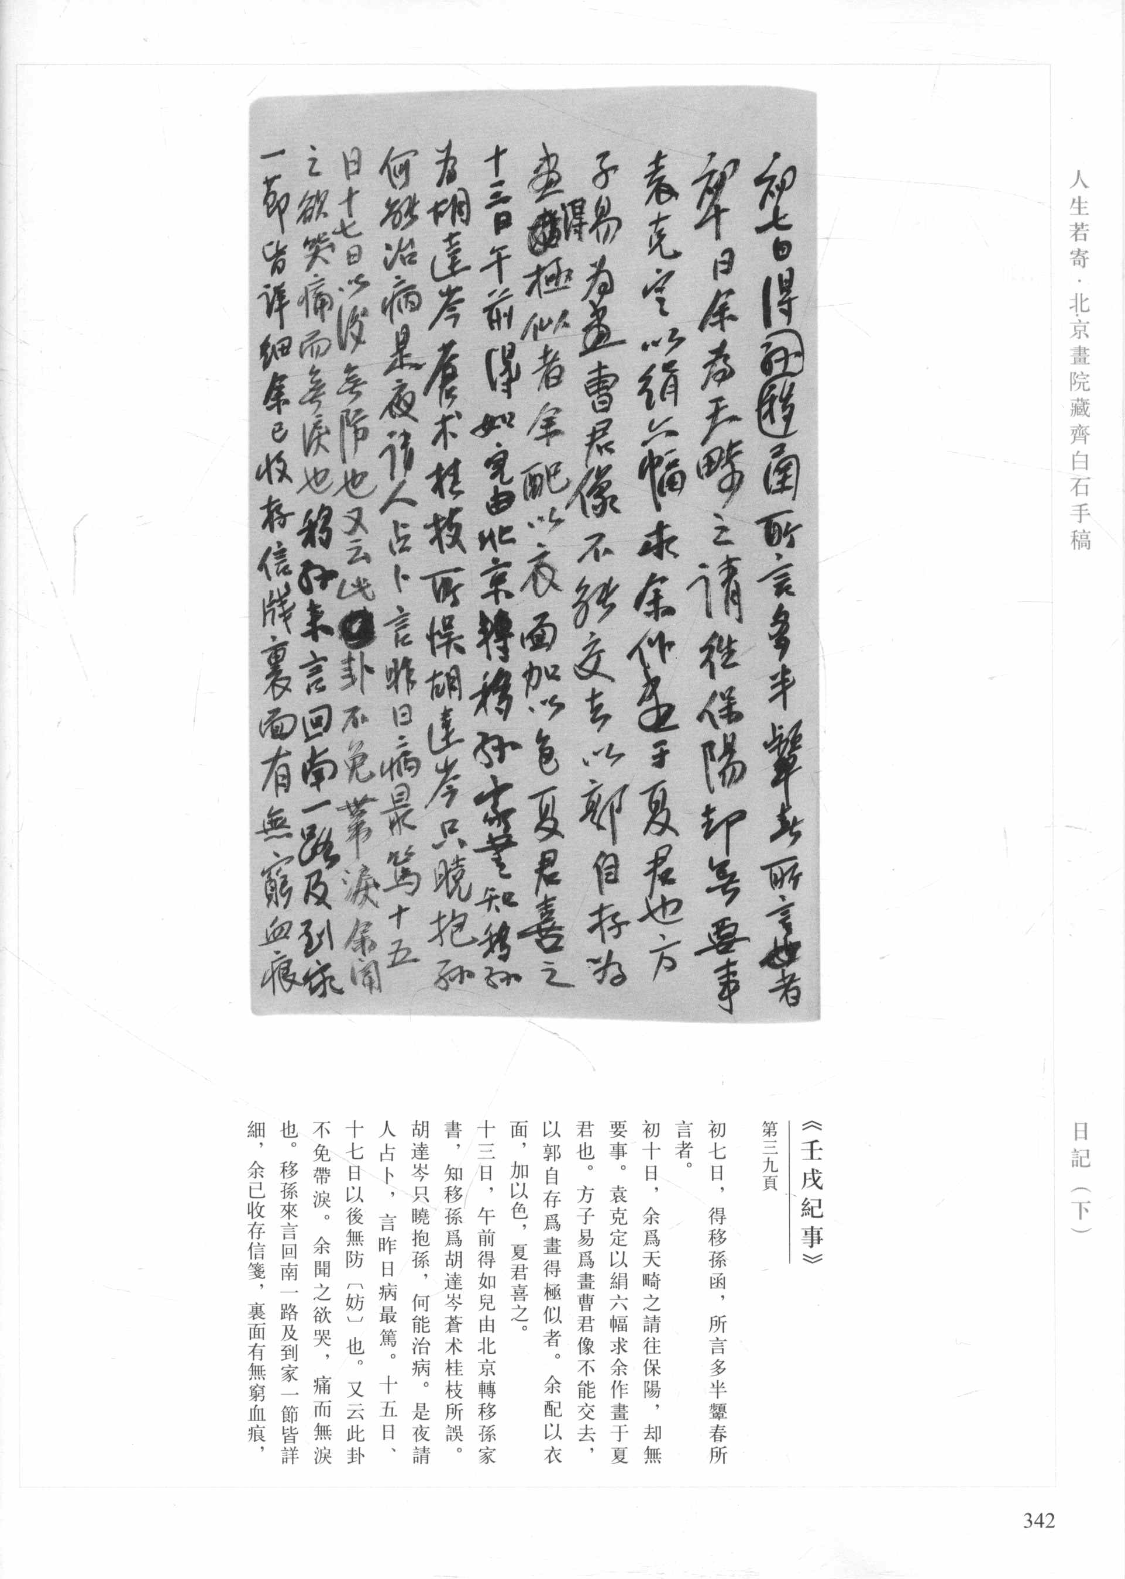 人生若寄·北京畫院藏齊白石手稿
日記（下）
初七日得移孫函所言多半顰春所言者
初十日余為天畸之請徃保陽却無要事
袁克定以絹六幅求余作畫于夏君也方
子易為畫曹君像不能交去以郭自存為
畫得極似者余配以衣面加以色夏君喜之
十三日午前得如兒由北京轉移孫家書知移孫
為胡達岑蒼术桂枝所悞胡達岑只曉抱孫
何能治病是夜請人占卜言昨日病最篤十五
日十七日以後無防也又云此卦不免帶淚余聞
之欲哭痛而無淚也移孫來言回南一路及到家
一節皆詳細余已收存信牋裏面有無窮血痕
《壬戌紀事》
第三九頁
初七日，得移孫函，所言多半顰春所
言者。
初十日，余爲天畸之請往保陽，却無
要事。袁克定以絹六幅求余作畫于夏
君也。方子易爲畫曹君像不能交去，
以郭自存爲畫得極似者。余配以衣
面，加以色，夏君喜之。
十三日，午前得如兒由北京轉移孫家
書，知移孫爲胡達岑蒼术桂枝所誤。
胡達岑只曉抱孫，何能治病。是夜請
人占卜，言昨日病最篤。十五日、
十七日以後無防〔妨〕也。又云此卦
不免帶淚。余聞之欲哭，痛而無淚
也。移孫來言回南一路及到家一節皆詳
細，余已收存信箋，裏面有無窮血痕，
342